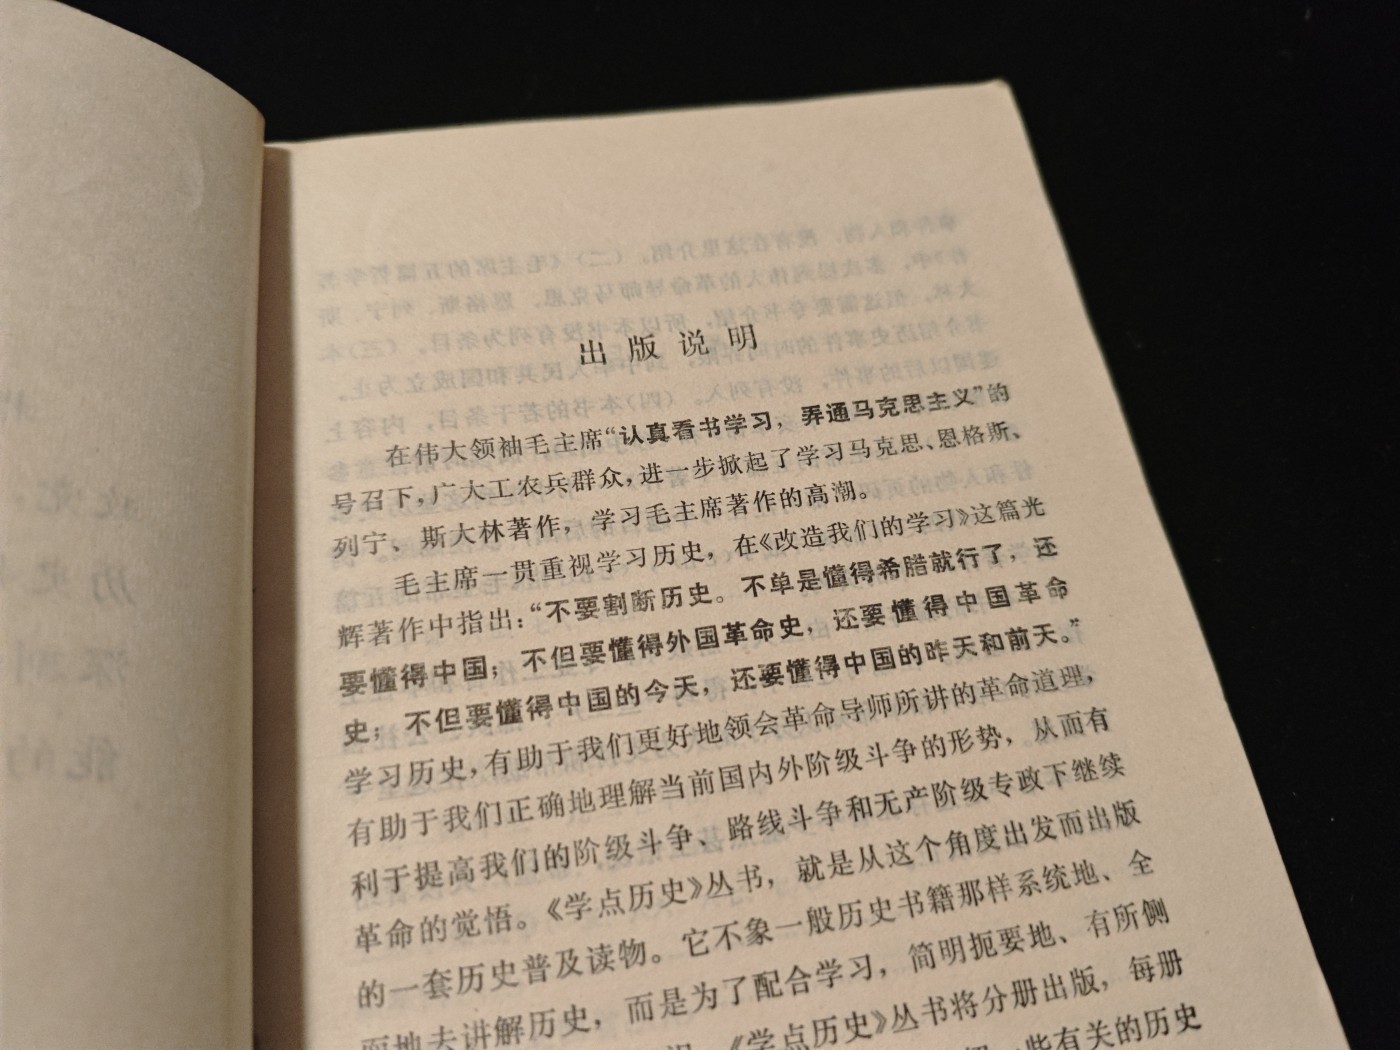 出版说明
在伟大领袖毛主席“认真看书学习，弄通马克思主义”的
号召下，广大工农兵群众，进一步掀起了学习马克思、恩格斯、
列宁、斯大林著作，学习毛主席著作的高潮。
毛主席一贯重视学习历史，在《改造我们的学习》这篇光
辉著作中指出：“不要割断历史。不单是懂得希腊就行了，还
要懂得中国；不但要懂得外国革命史，还要懂得中国革命
史；不但要懂得中国的今天，还要懂得中国的昨天和前天。”
学习历史，有助于我们更好地领会革命导师所讲的革命道理，
有助于我们正确地理解当前国内外阶级斗争的形势，从而有
利于提高我们的阶级斗争、路线斗争和无产阶级专政下继续
革命的觉悟。《学点历史》丛书，就是从这个角度出发而出版
的一套历史普及读物。它不象一般历史书籍那样系统地、全
面地去讲解历史，而是为了配合学习，简明扼要地、有所侧
《学点历史》丛书将分册出版，每册
一些有关的历史